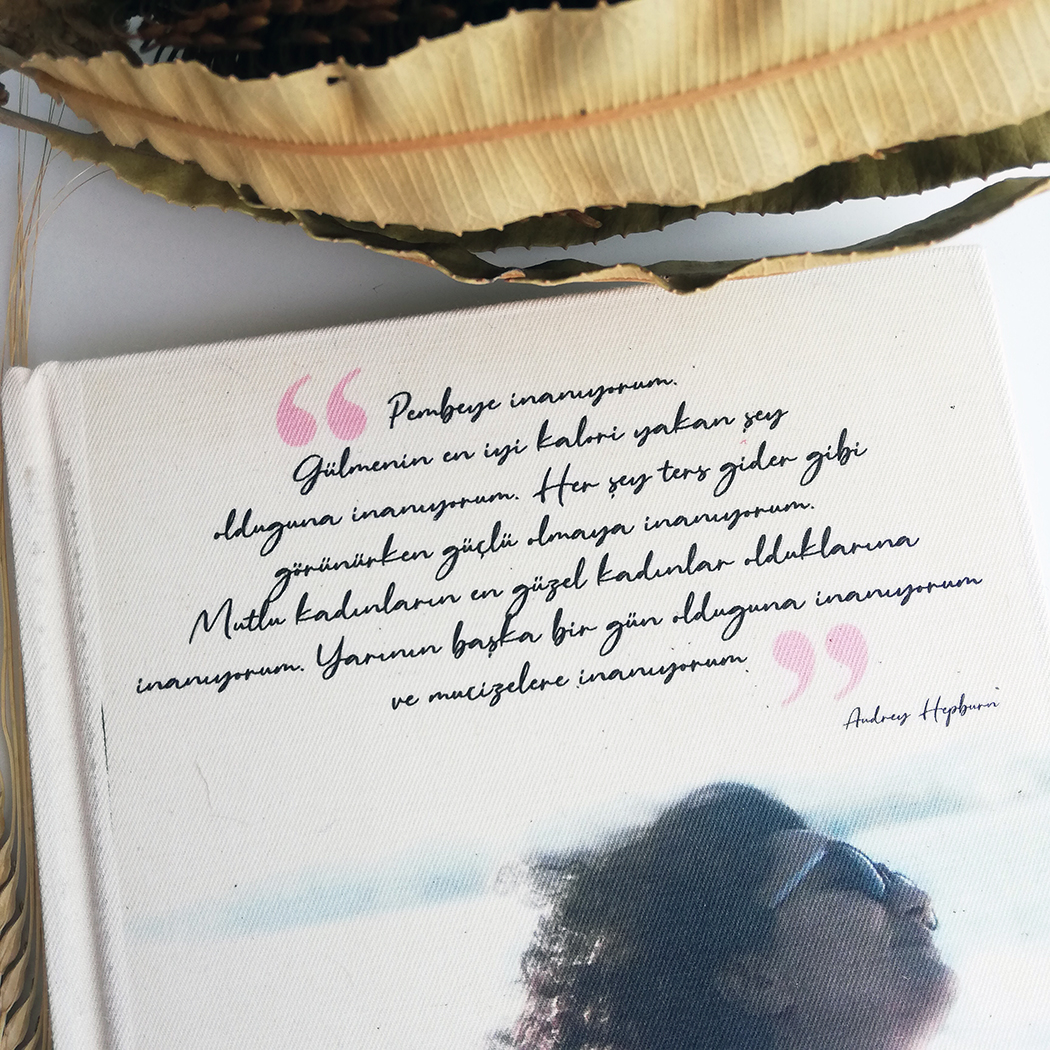 “ Pembeye inanıyorum.
Gülmenin en iyi kalori yakan şey
olduguna inanıyorum. Her şey ters gider gibi
görünürken güçlü olmaya inanıyorum.
Mutlu kadınların en güzel kadınlar olduklarına
inanıyorum. Yarının başka bir gün olduguna inanıyorum
ve mucizelere inanıyorum ”
Audrey Hepburn